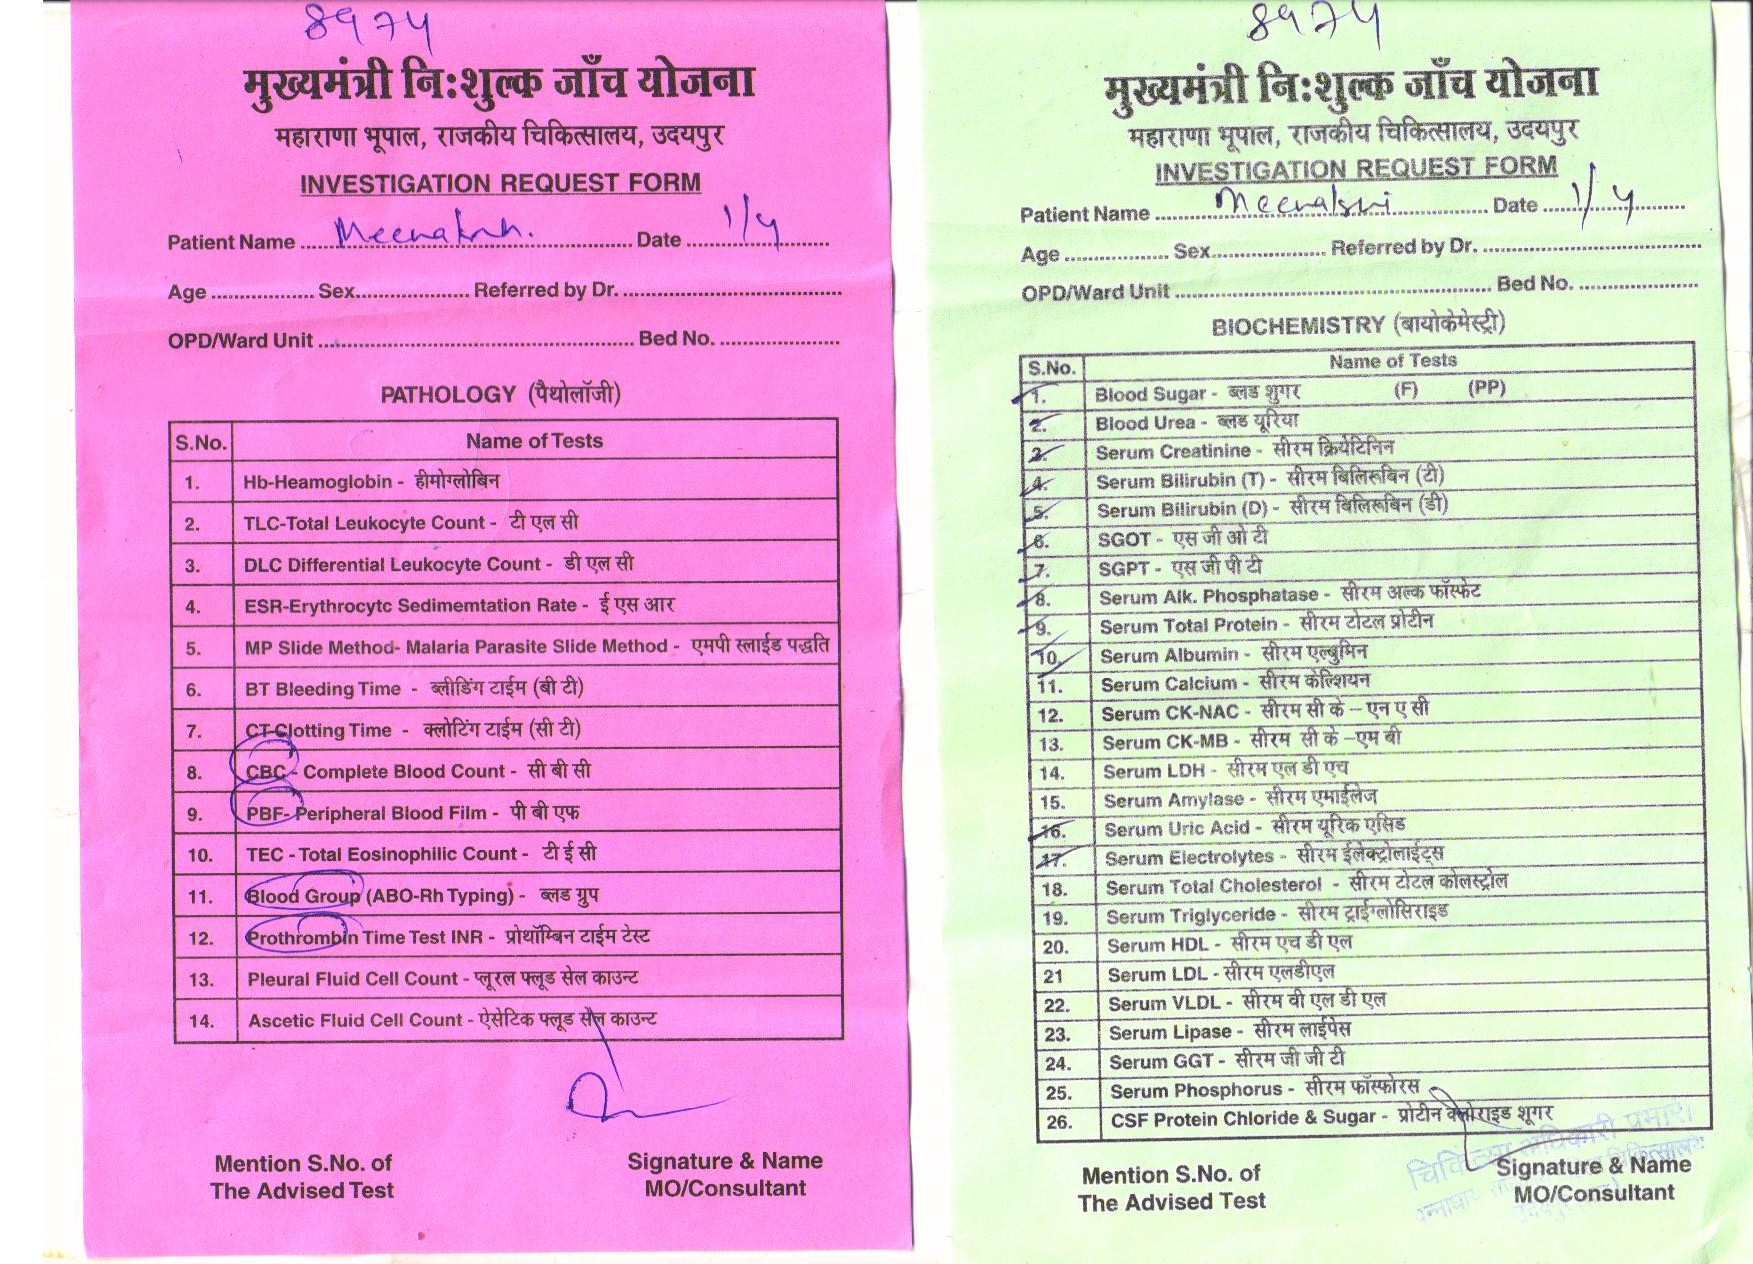 8974
मुख्यमंत्री निःशुल्क जाँच योजना
महाराणा भूपाल, राजकीय चिकित्सालय, उदयपुर
INVESTIGATION REQUEST FORM
Patient Name Date 1/4
Age Sex Referred by Dr.
OPD/Ward Unit Bed No.
PATHOLOGY (पैथोलॉजी)
S.No. Name of Tests
1. Hb-Heamoglobin - हीमोग्लोबिन
2. TLC-Total Leukocyte Count - टी एल सी
3. DLC Differential Leukocyte Count - डी एल सी
4. ESR-Erythrocytc Sedimemtation Rate - ई एस आर
5. MP Slide Method- Malaria Parasite Slide Method - एमपी स्लाईड पद्धति
6. BT Bleeding Time - ब्लीडिंग टाईम (बी टी)
7. CT-Clotting Time - क्लोटिंग टाईम (सी टी)
8. CBC - Complete Blood Count - सी बी सी
9. PBF- Peripheral Blood Film - पी बी एफ
10. TEC - Total Eosinophilic Count - टी ई सी
11. Blood Group (ABO-Rh Typing) - ब्लड ग्रुप
12. Prothrombin Time Test INR - प्रोथॉम्बिन टाईम टेस्ट
13. Pleural Fluid Cell Count - प्लूरल फ्लूड सेल काउन्ट
14. Ascetic Fluid Cell Count - ऐसेटिक फ्लूड सेल काउन्ट
Mention S.No. of
The Advised Test
Signature & Name
MO/Consultant
8974
मुख्यमंत्री निःशुल्क जाँच योजना
महाराणा भूपाल, राजकीय चिकित्सालय, उदयपुर
INVESTIGATION REQUEST FORM
Patient Name Meenakshi Date 1/4
Age Sex Referred by Dr.
OPD/Ward Unit Bed No.
BIOCHEMISTRY (बायोकेमेस्ट्री)
S.No. Name of Tests
1. Blood Sugar - ब्लड शुगर (F) (PP)
2. Blood Urea - ब्लड यूरिया
3. Serum Creatinine - सीरम क्रियेटिनिन
4. Serum Bilirubin (T) - सीरम बिलिरूबिन (टी)
5. Serum Bilirubin (D) - सीरम बिलिरूबिन (डी)
6. SGOT - एस जी ओ टी
7. SGPT - एस जी पी टी
8. Serum Alk. Phosphatase - सीरम अल्क फॉस्फेट
9. Serum Total Protein - सीरम टोटल प्रोटीन
10. Serum Albumin - सीरम एल्बुमिन
11. Serum Calcium - सीरम केल्शियन
12. Serum CK-NAC - सीरम सी के – एन ए सी
13. Serum CK-MB - सीरम सी के –एम बी
14. Serum LDH - सीरम एल डी एच
15. Serum Amylase - सीरम एमाईलेज
16. Serum Uric Acid - सीरम यूरिक एसिड
17. Serum Electrolytes - सीरम ईलेक्ट्रोलाईट्स
18. Serum Total Cholesterol - सीरम टोटल कोलस्ट्रोल
19. Serum Triglyceride - सीरम ट्राईग्लोसिराइड
20. Serum HDL - सीरम एच डी एल
21 Serum LDL - सीरम एलडीएल
22. Serum VLDL - सीरम वी एल डी एल
23. Serum Lipase - सीरम लाईपेस
24. Serum GGT - सीरम जी जी टी
25. Serum Phosphorus - सीरम फॉस्फोरस
26. CSF Protein Chloride & Sugar - प्रोटीन क्लोराइड शूगर
चिकित्सा अधिकारी प्रभारी
Mention S.No. of
The Advised Test
Signature & Name
MO/Consultant